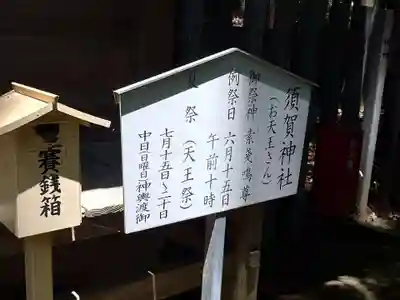 須賀神社
（お天王さん）
御祭神 素戔鳴尊
例祭日 六月十五日
午前十時
夏祭（天王祭）
七月十五日〜二十日
中日日曜日神輿渡御
賽銭箱